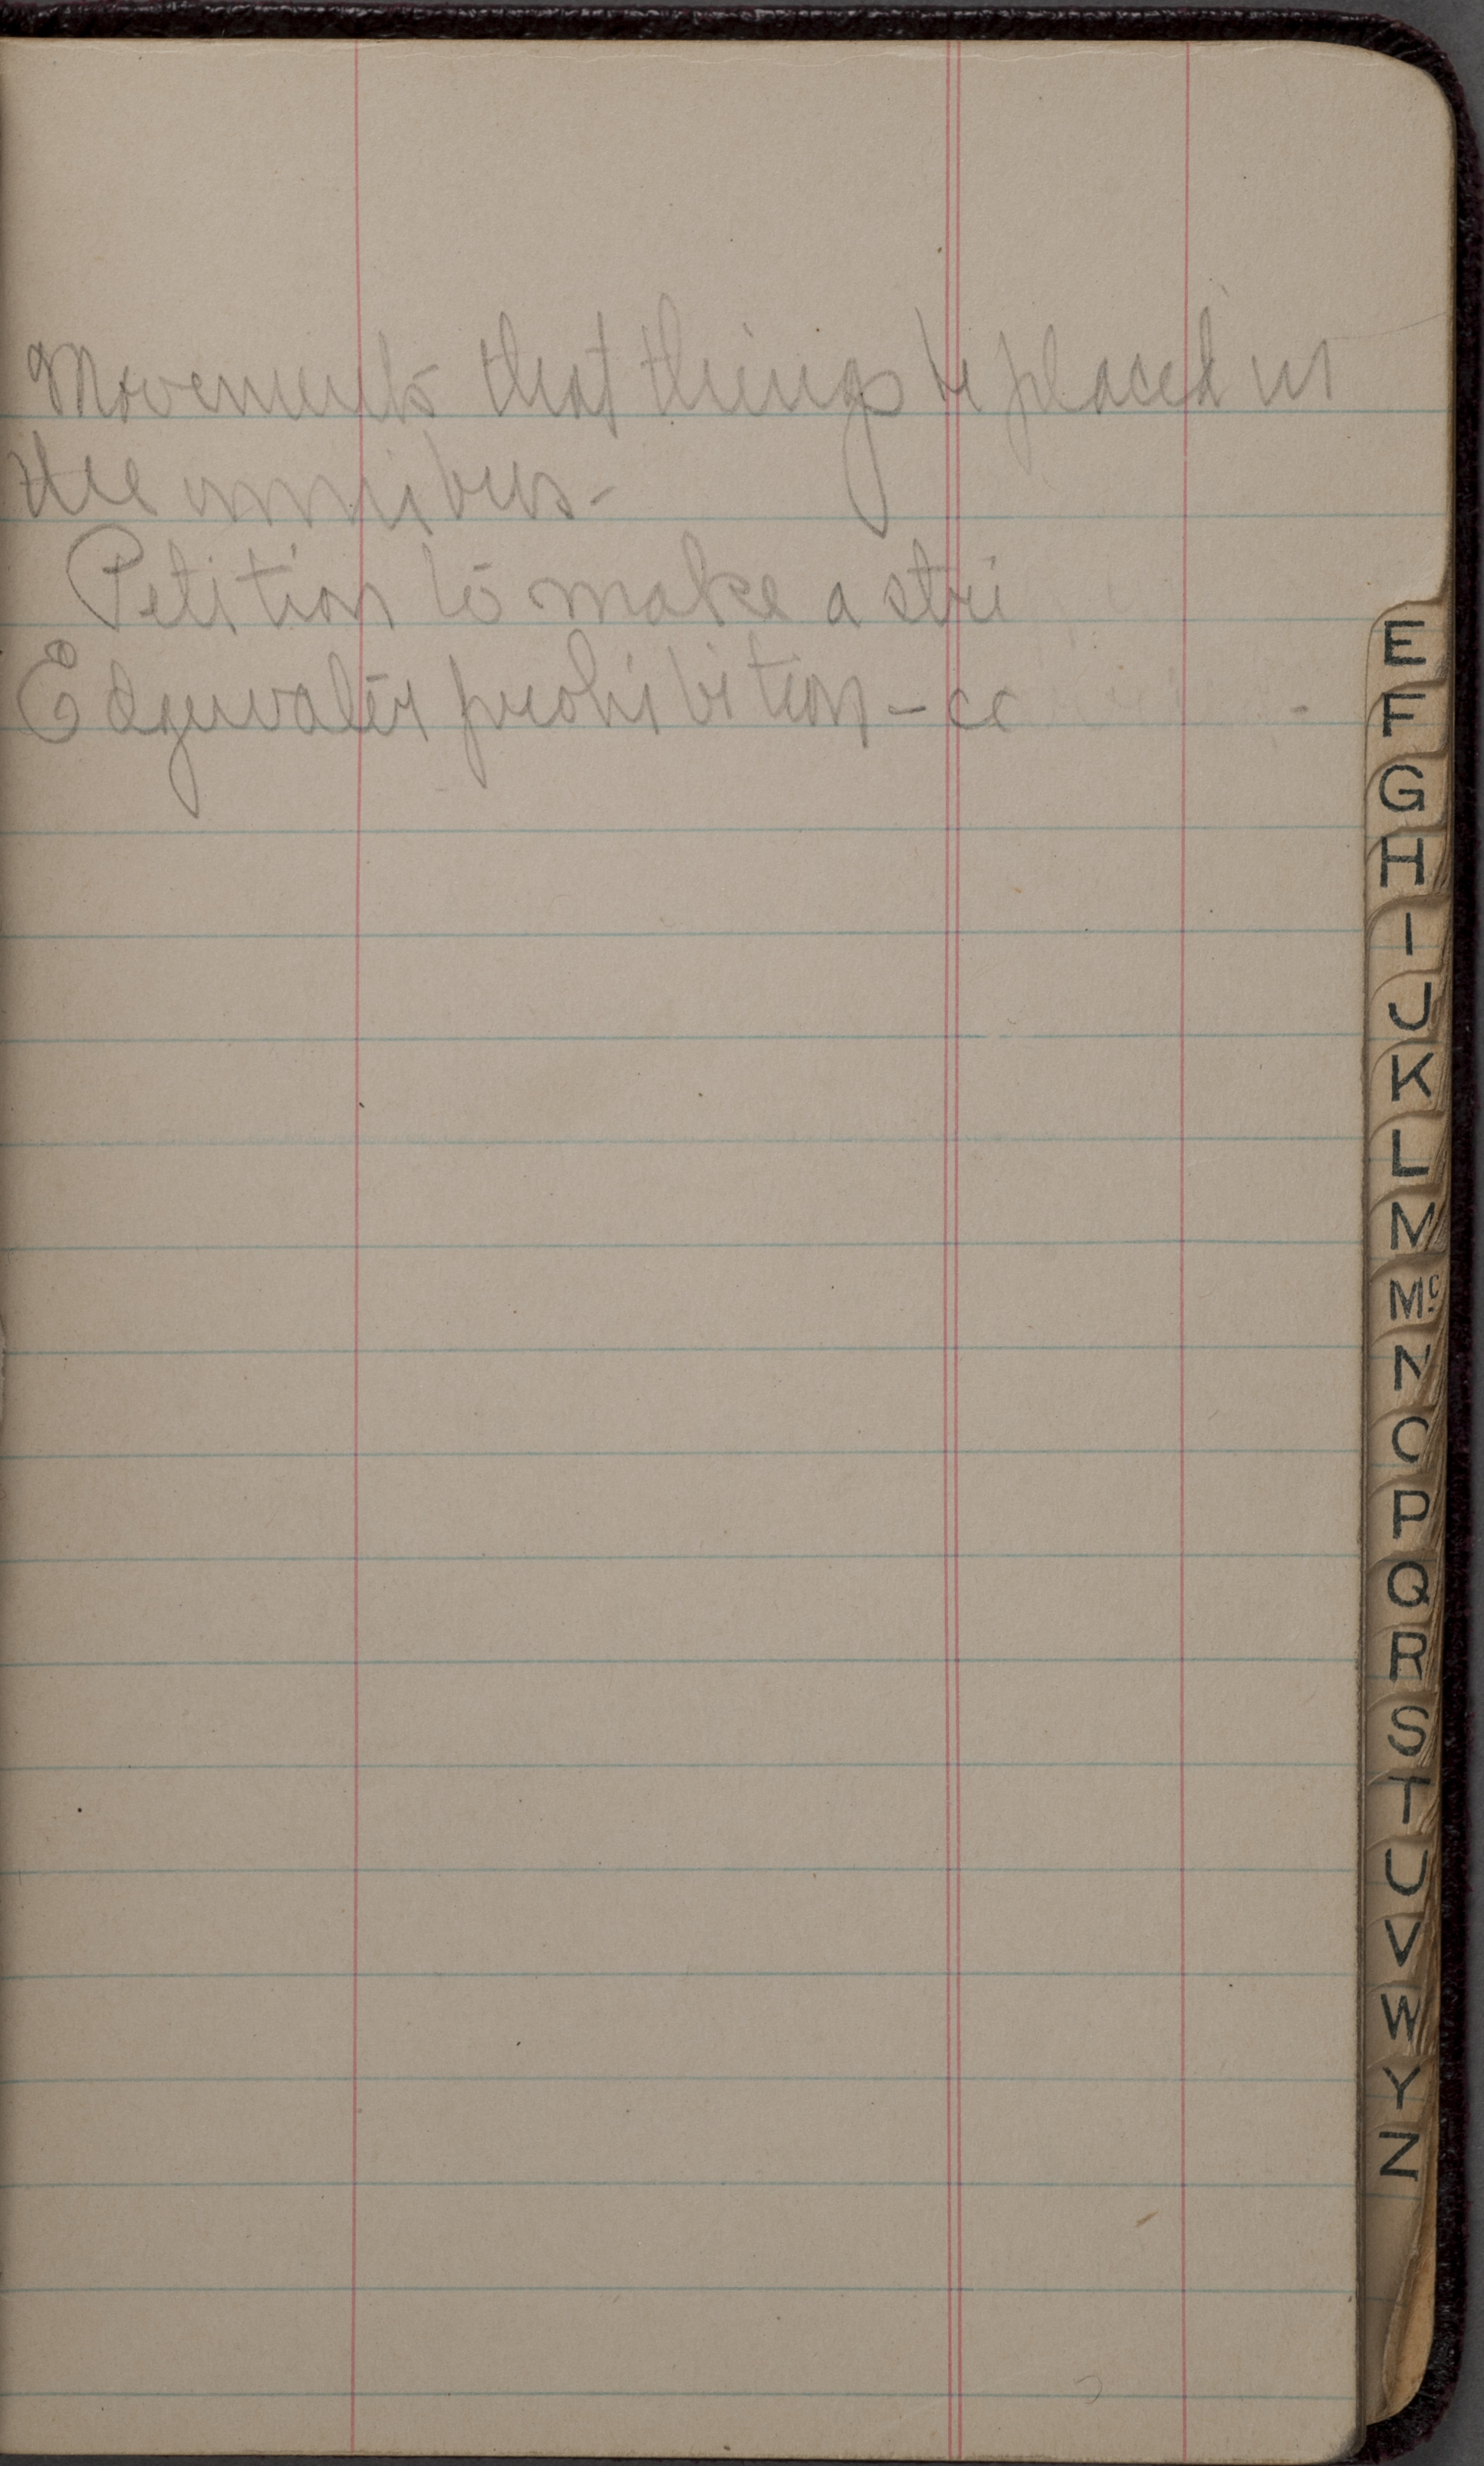 Movements that things be placed in
the omnibus -
Petition to make a stri
Edgewater prohibition - cc -
E
F
G
H
I
J
K
L
M
Mc
N
O
P
Q
R
S
T
U
V
W
Y
Z